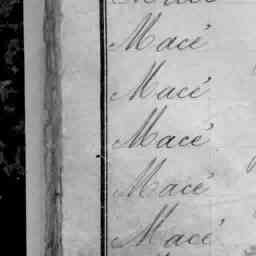 Macé
Macé
Macé
Macé
Macé